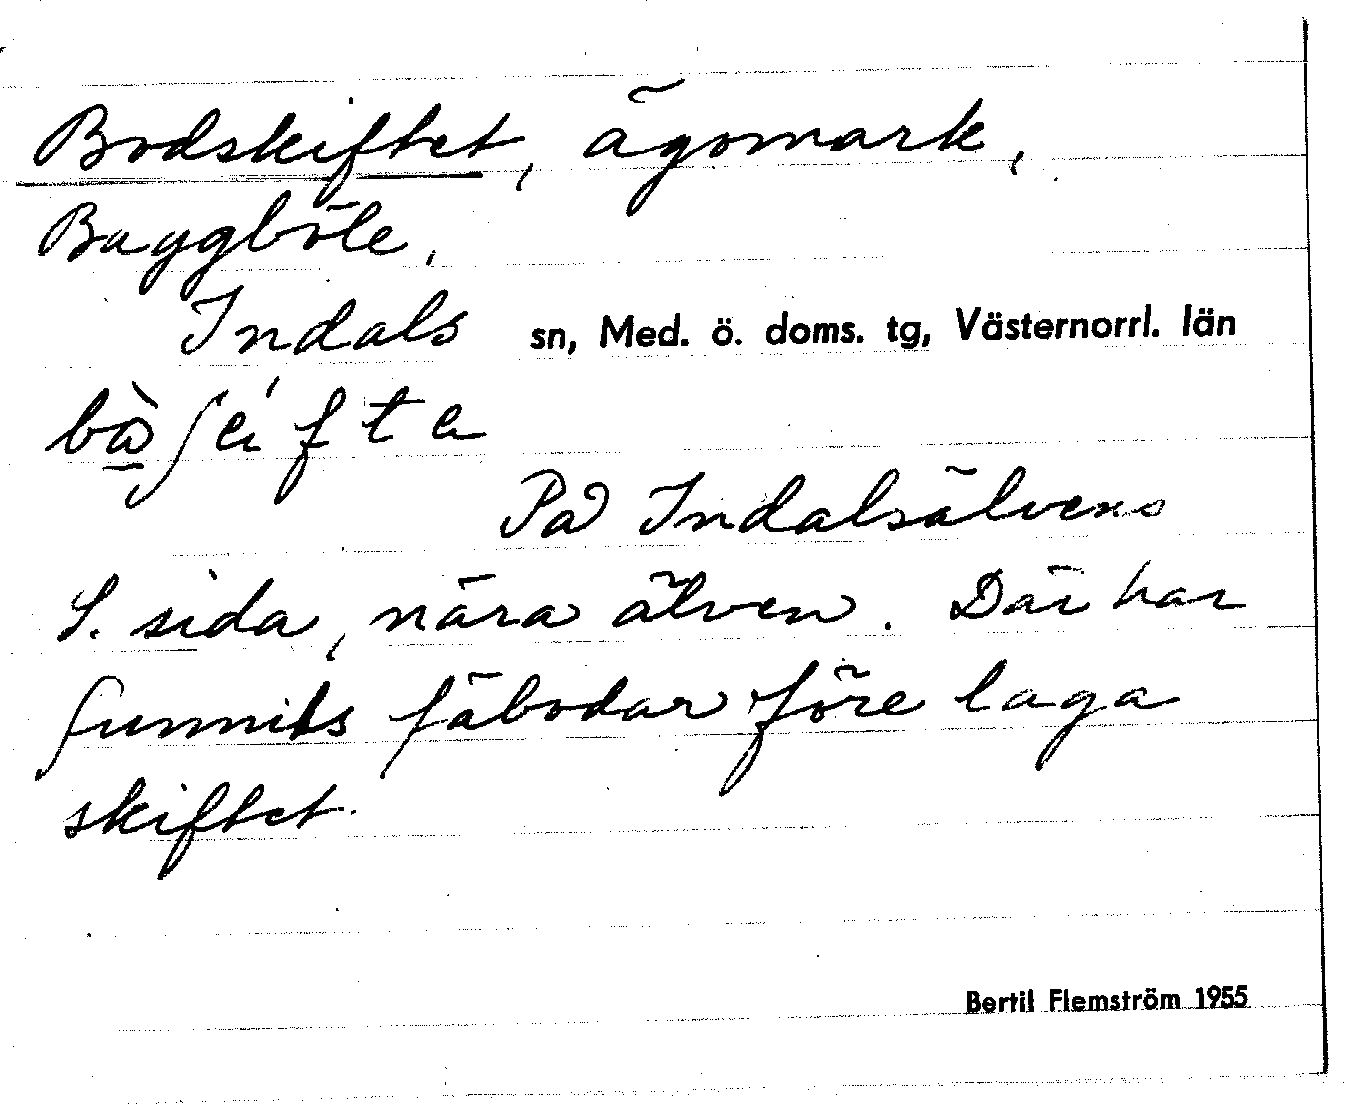 Bodskiftet, ägomark,
Baggböle,
Indals sn, Med. ö. doms. tg, Västernorrl. län
På Indalsälvens
S. sida, nära älven. Där har
funnits fäbodar före laga
skiftet.
Bertil Flemström 1955